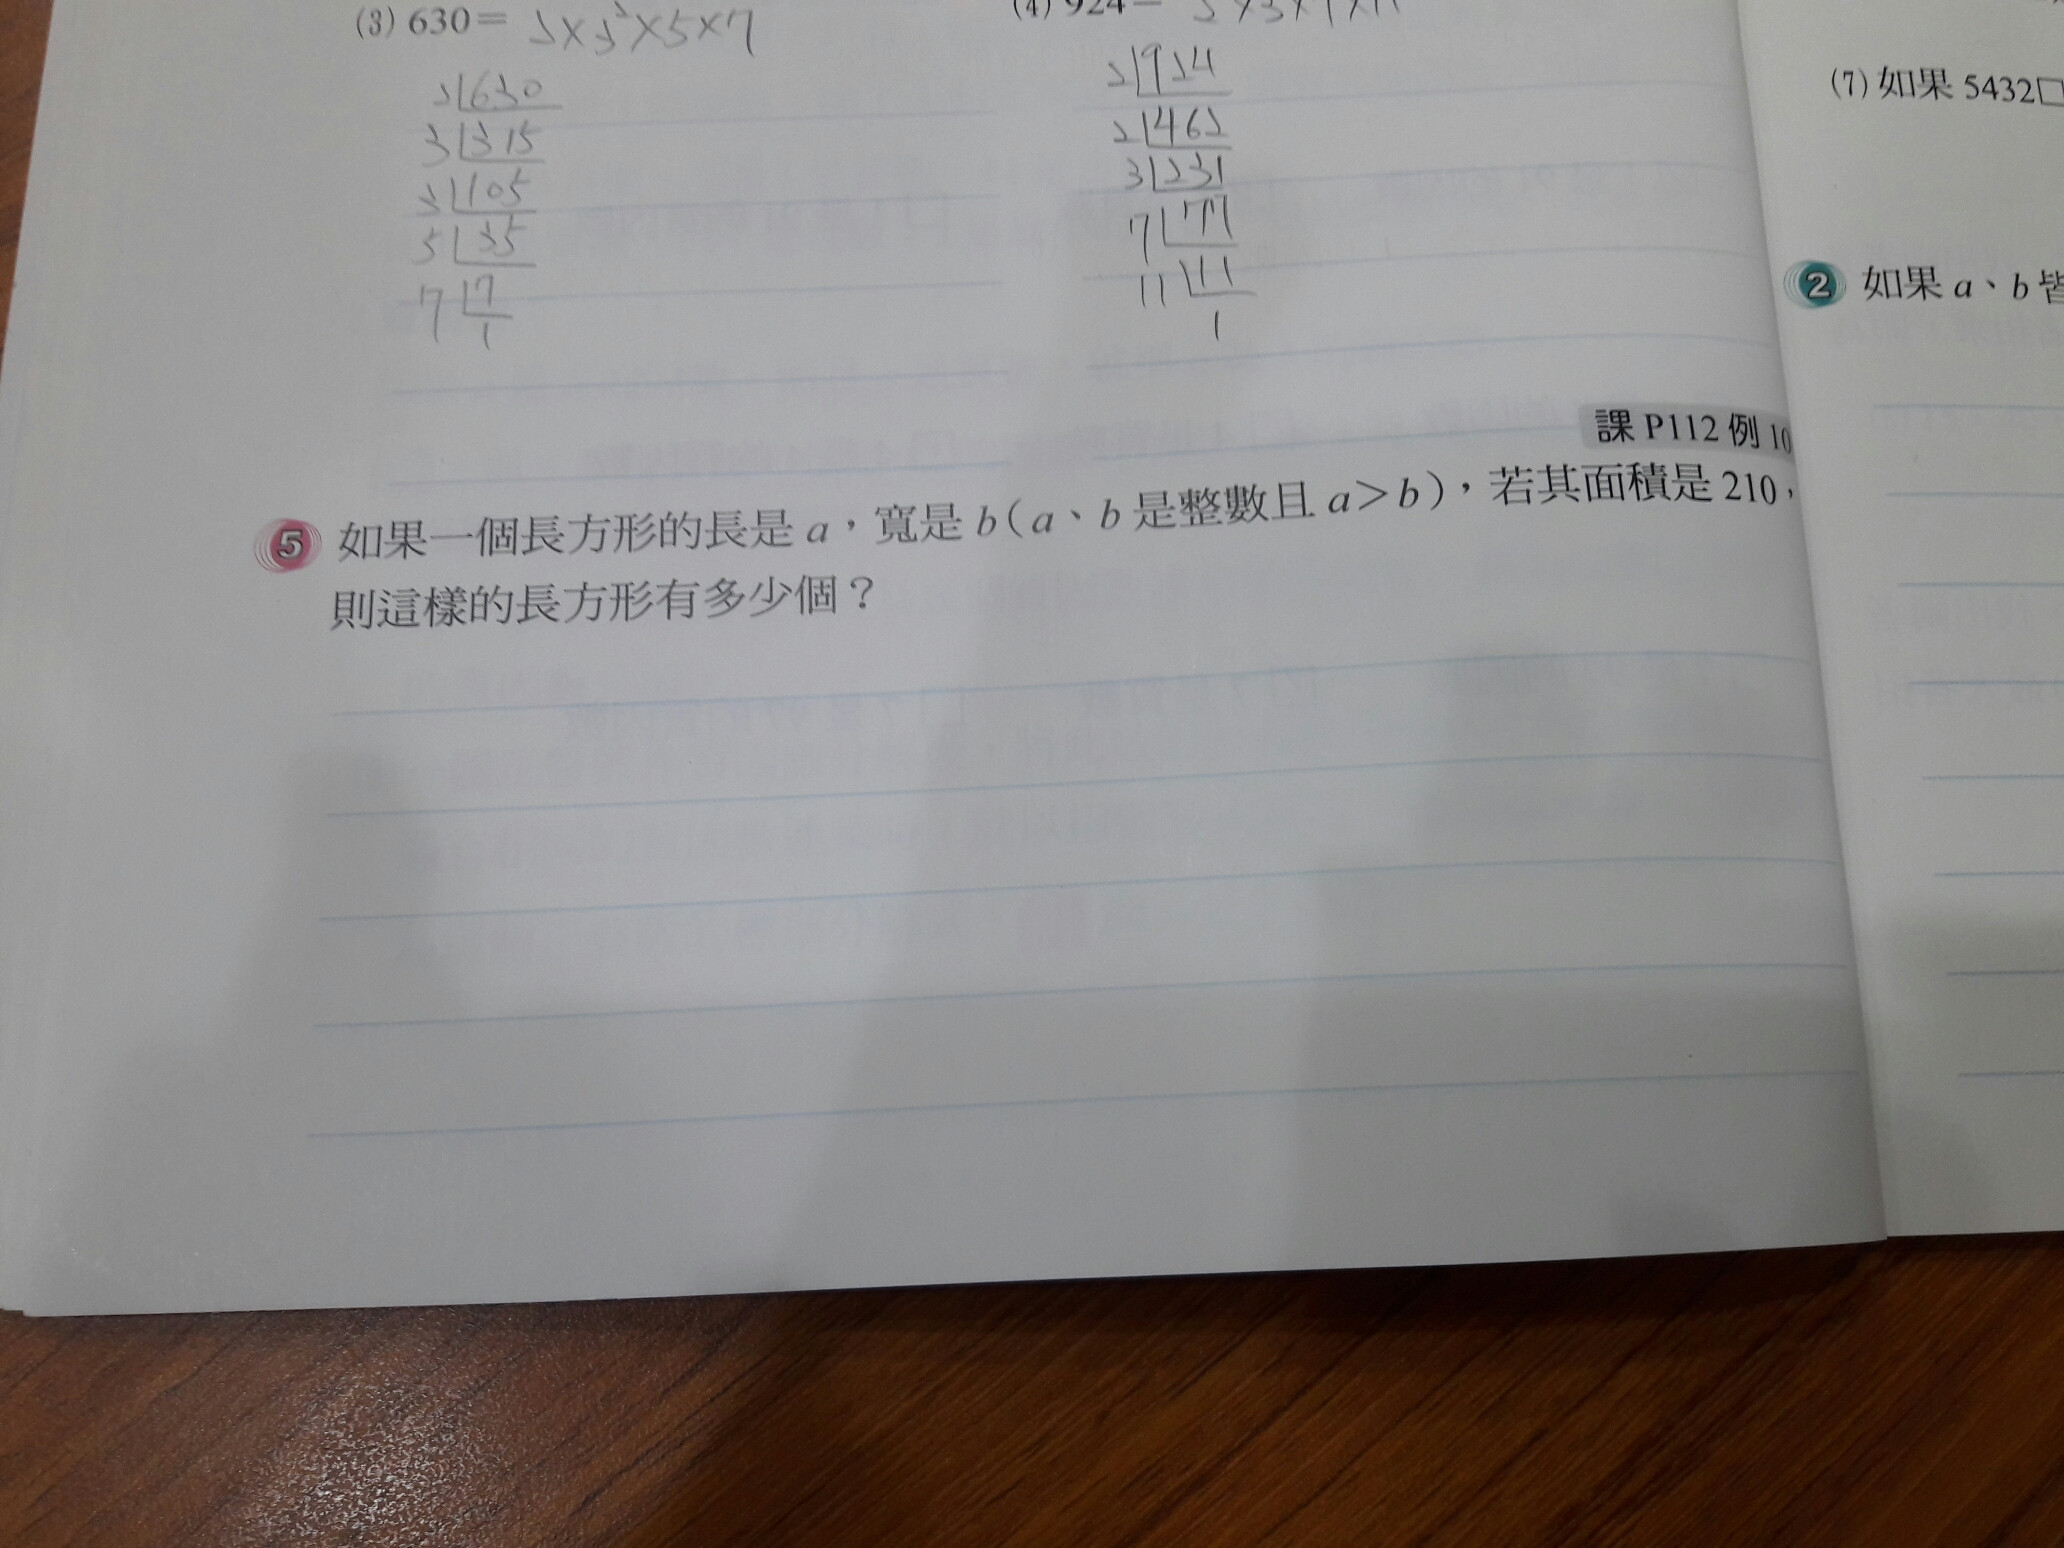 (3) 630＝ 2×3²×5×7
(4) 924＝
2 630
3 315
3 105
5 35
7 7
1
2 924
2 462
3 231
7 77
11 11
1
(7) 如果 5432□
2 如果 a、b 皆
課 P112 例 10
5 如果一個長方形的長是 a，寬是 b（a、b 是整數且 a＞b），若其面積是 210，
則這樣的長方形有多少個？